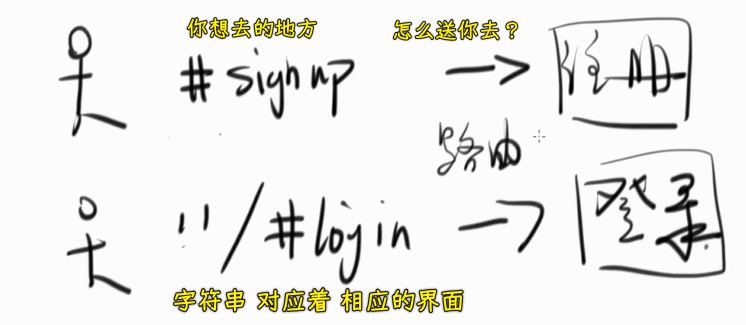 你想去的地方 怎么送你去？
#signup → 注册
路由
"/#login → 登录
字符串 对应着 相应的界面